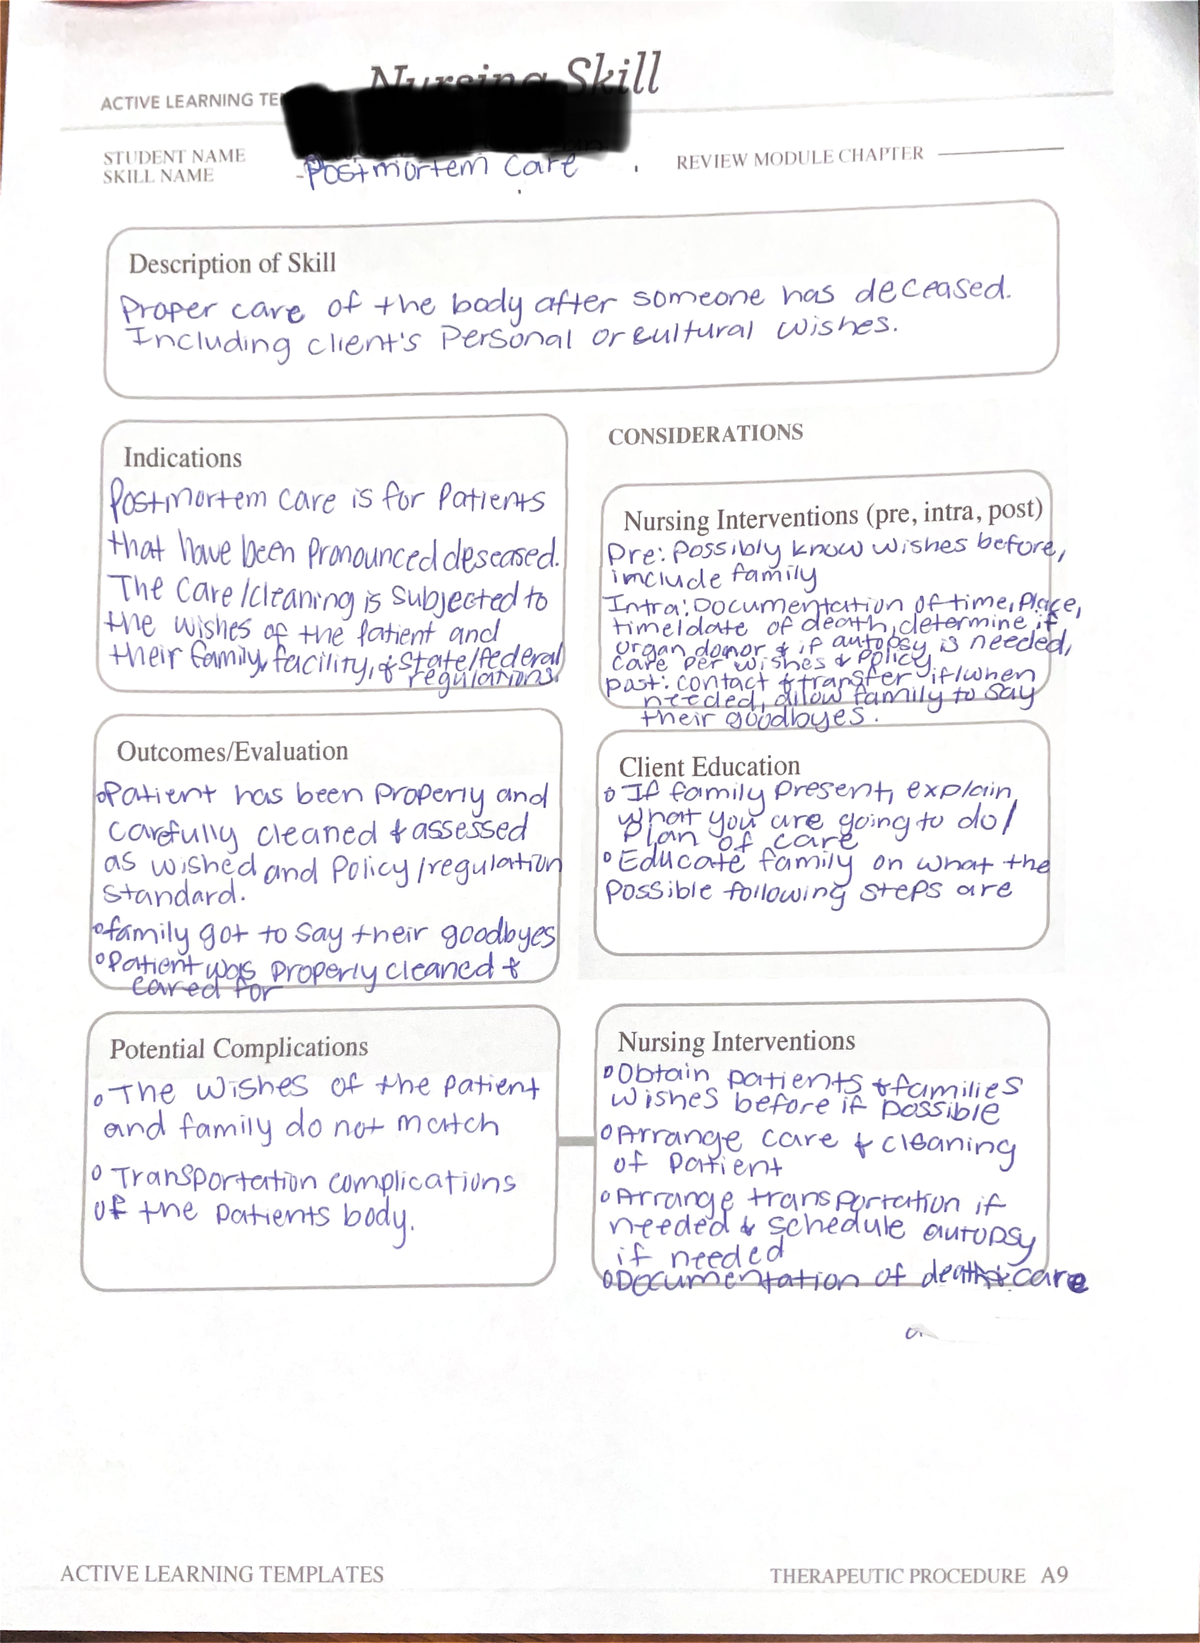 Nursing Skill
ACTIVE LEARNING
STUDENT NAME
SKILL NAME
Postmortem care
REVIEW MODULE CHAPTER
Description of Skill
Proper care of the body after someone has deceased.
Including client's Personal or cultural wishes.
Indications
Postmortem care is for Patients
that have been pronounced deseased.
The care/cleaning is subjected to
the wishes of the patient and
their family, facility, & State/federal
regulations.
CONSIDERATIONS
Nursing Interventions (pre, intra, post)
Pre: Possibly know wishes before,
include family
Intra: Documentation of time, place,
time/date of death, determine if
organ donor & if autopsy is needed,
care per wishes & Policy.
post: contact & transfer if/when
needed, allow family to say
their goodbyes.
Outcomes/Evaluation
Patient has been Properly and
carefully cleaned & assessed
as wished and Policy/regulation
standard.
family got to say their goodbyes
Patient was properly cleaned &
cared for
Client Education
If family Present, explain
what you are going to do/
Plan of care
Educate family on what the
possible following steps are
Potential Complications
The wishes of the patient
and family do not match
Transportation complications
of the patients body.
Nursing Interventions
Obtain patients & families
wishes before if possible
Arrange care & cleaning
of patient
Arrange transportation if
needed & schedule autopsy
if needed
Documentation of death & care
ACTIVE LEARNING TEMPLATES
THERAPEUTIC PROCEDURE A9